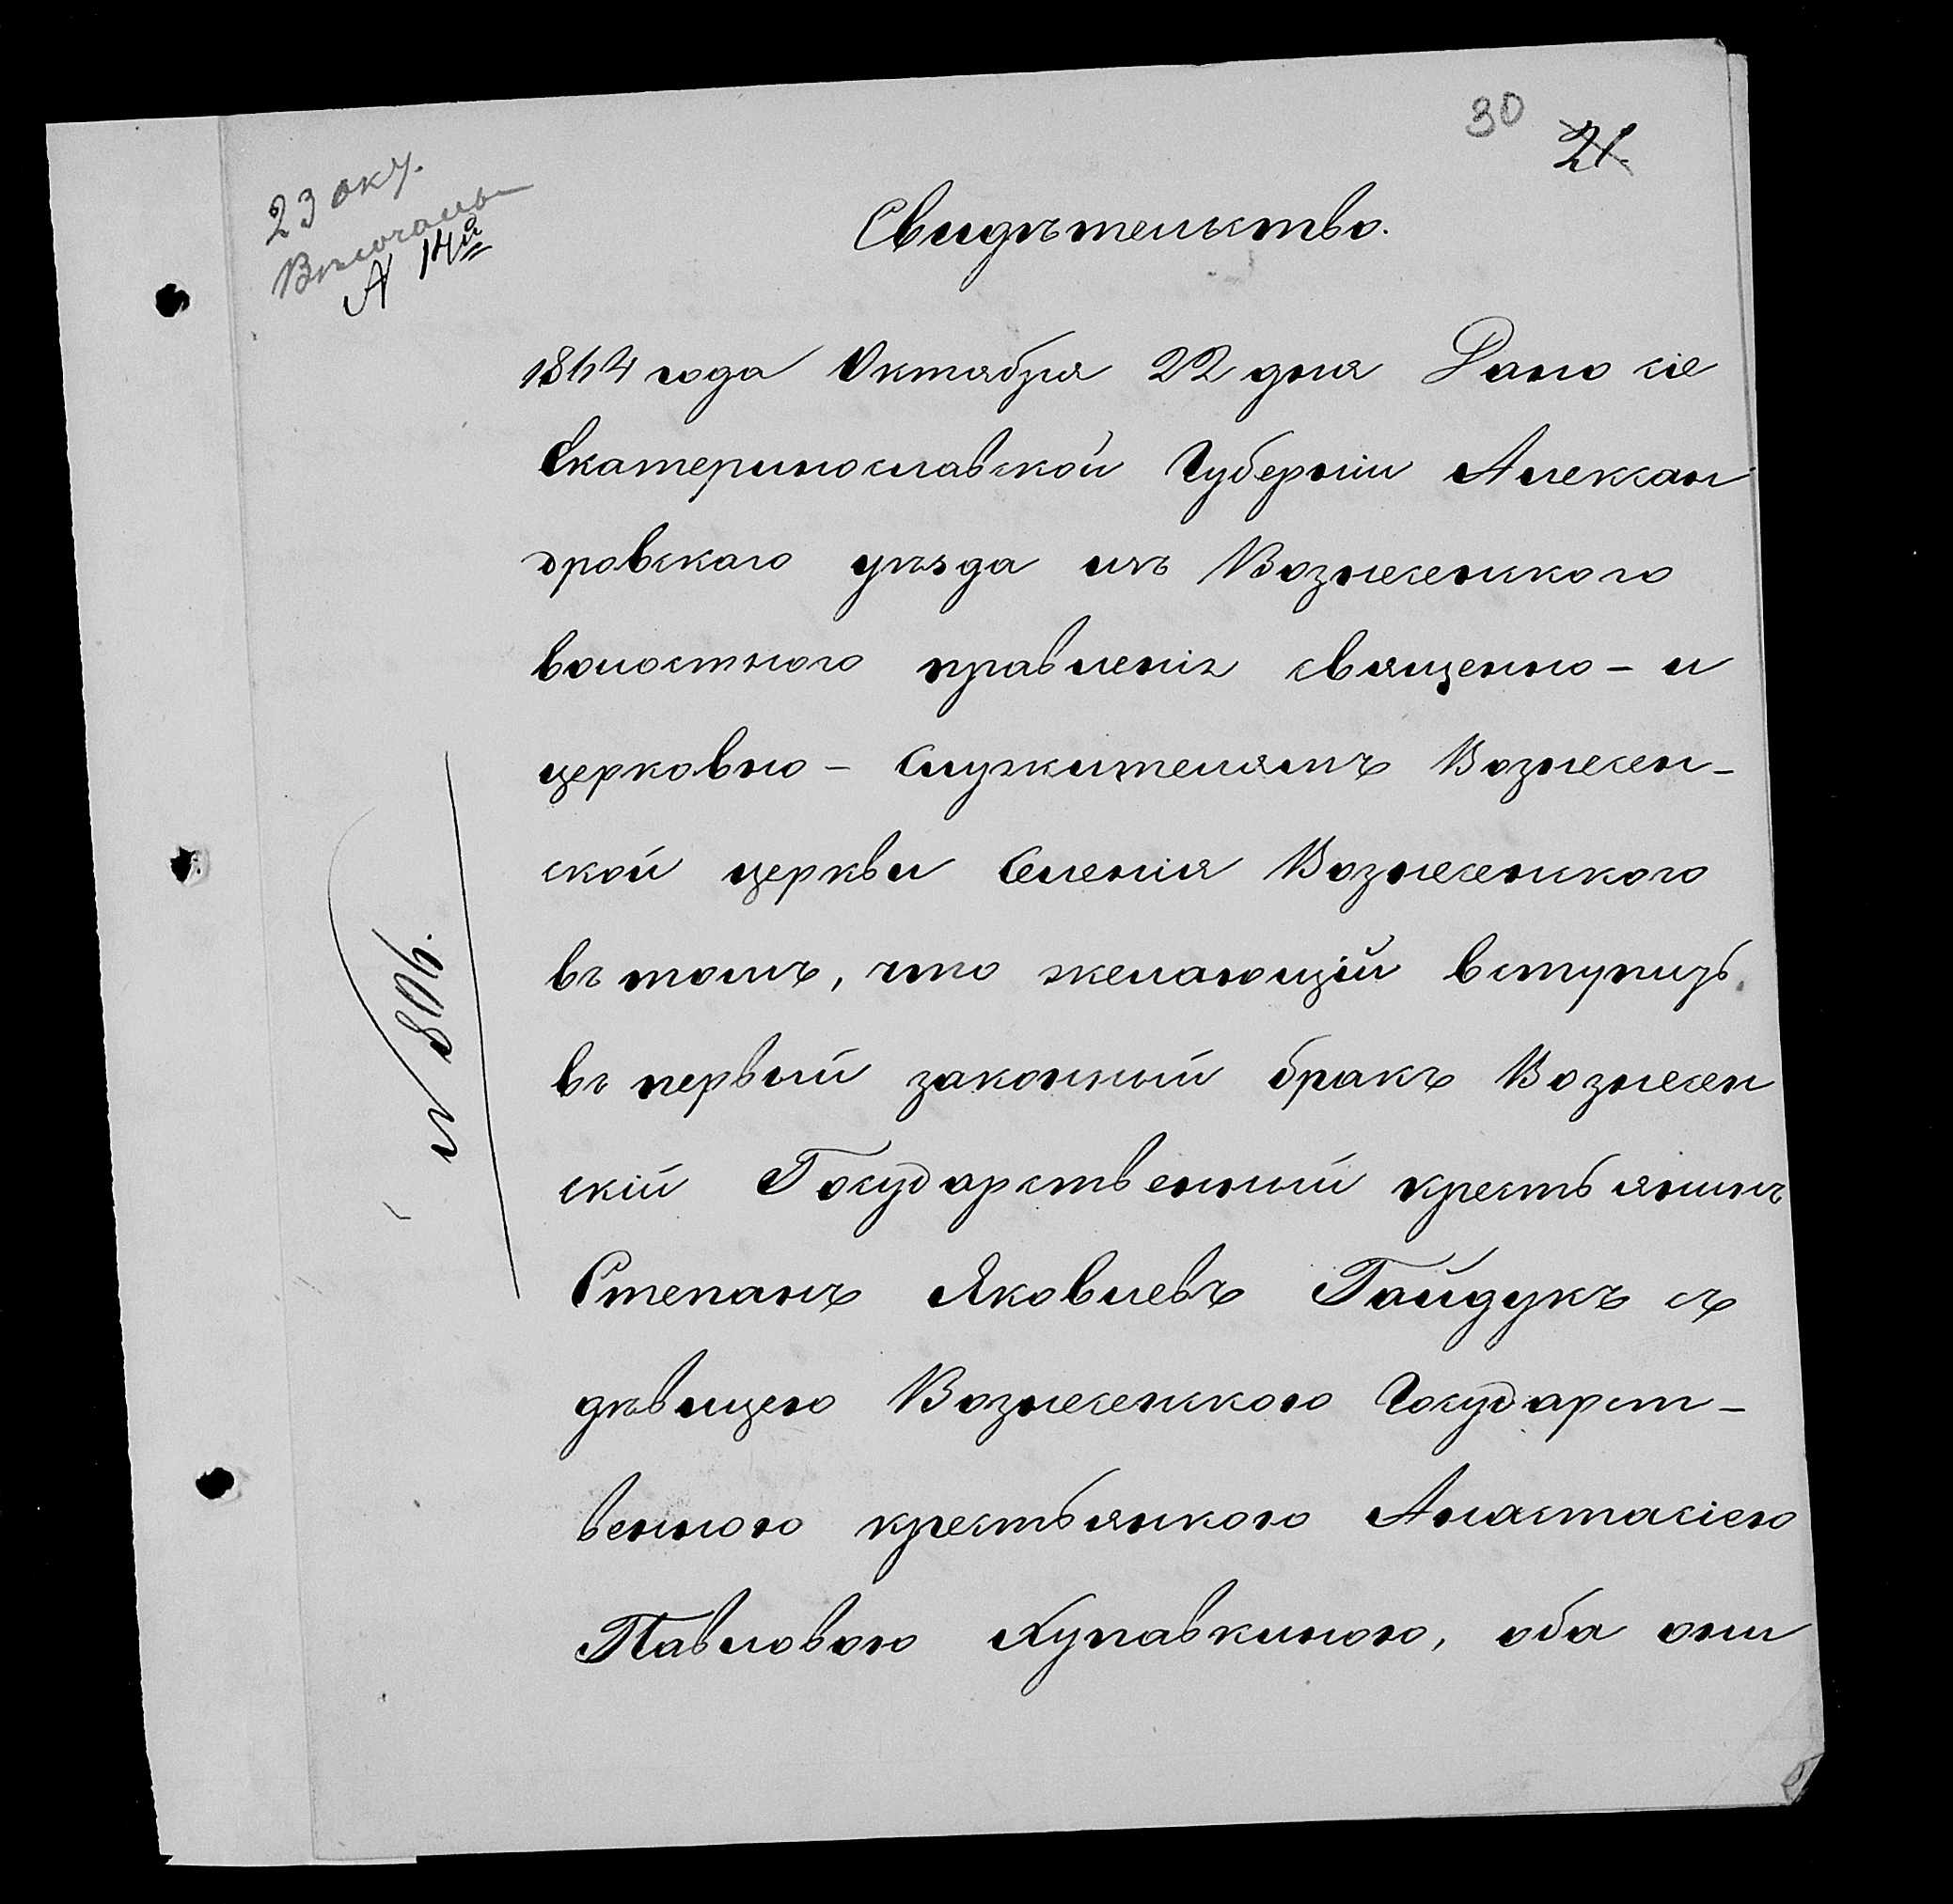 30
21.
23 окт.
Вѣнчаны
А 14й
Свидѣтельство.
1864 года Октября 22 дня Дано сіе
Екатеринославской Губерніи Алексан
дровскаго уѣзда изъ Вознесенского
волостного правленія священно - и
церковно - служителямъ Вознесен-
ской церкви Селенія Вознесенского
въ томъ, что желающій вступить
въ первый законный бракъ Вознесен
скій Государственный крестьянинъ
Степанъ Яковлевъ Гайдукъ съ
дѣвицею Вознесенскою Государст-
венною крестьянкою Анастасіею
Павловою Купавкиною, оба они
№ 806.